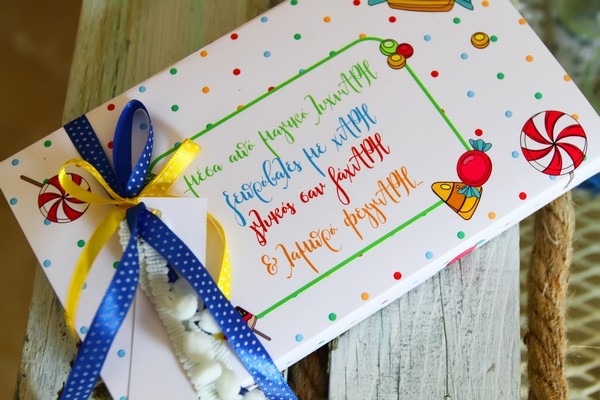 μέσα από μαγικό λυχνΑΡΗ
ξεπρόβαλες με χΑΡΗ
γλυκός σαν ζαχΑΡΗ
& λαμπρό φεγγΑΡΗ...